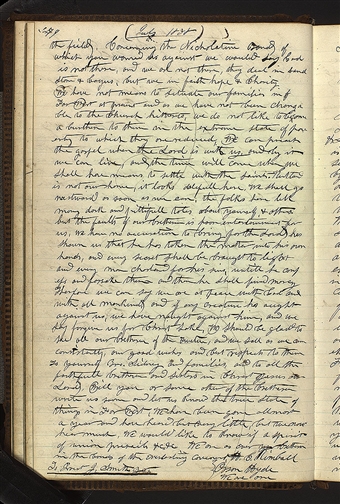 ( July 1838 )
the field. Concerning the Nicholatine Band of
which you warned us against we would say God
is not there, and we are not there, they deal in sand
stone & bogus, but we in faith hope & Charity
We have not means to situate our families in F
For West at present and as we have not been charga
ble to the Church hitherto, we do not like to become
a burthen to them in the extreme state of pov
erty to which they are reduced. We can preach
the gospel when the Lord is with us, and by it
we can live, and the time will come when we
shall have means to settle with the Saints. Kirtland
is not our home, it looks dolefull here. We shall go
westward as soon as we can. the folks here tell
many dark and pittifull tales about yourself & others
but the faults of our brethren is poor entertainment for
us. We have no accusation to bring for the Lord has
shown us that he has taken the matter into his own
hands, and every secret shall be brought to light
and every man chastened for his sins, untill he conf
ess and forsake them and then he shall find mercy
Therefore we can say we are at peace with God and
with all mankind and if any creature has aught
against us, we have naught against him, and we
say forgive us for Christ sake, We should be glad to
see all our brethren of the Twelve and we will as we can
consistently, our good wishes and best respects to them
to yourself Em. Sidney and families, and to all the
faithfull brethren and sisters in Christ Jesus our
Lord. Will you or some other of the brethren
write us soon and let us know the true state of
things in Far West. We have been gone allmost
a year and have heard but very little, but we now
hear much. We would like to know if a spirit
of union prevails &c &c. We are as ever your brethren
in the bonds of the everlasting covenant H. C. Kimball
To Prest. J. Smith Jr. Orson Hyde